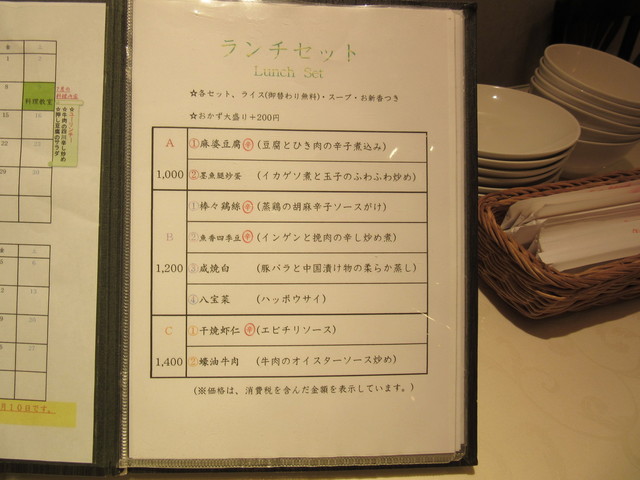 ランチセット
Lunch Set
☆各セット、ライス(御替わり無料)・スープ・お新香つき
☆おかず大盛り+200円
A
1,000
①麻婆豆腐 辛 (豆腐とひき肉の辛子煮込み)
②墨魚腿炒蛋 (イカゲソ煮と玉子のふわふわ炒め)
B
1,200
①棒々鶏絲 辛 (蒸鶏の胡麻辛子ソースがけ)
②魚香四季豆 辛 (インゲンと挽肉の辛し炒め煮)
③咸焼白 (豚バラと中国漬け物の柔らか蒸し)
④八宝菜 (ハッポウサイ)
C
1,400
①干焼虾仁 辛 (エビチリソース)
②蠔油牛肉 (牛肉のオイスターソース炒め)
(※価格は、消費税を含んだ金額を表示しています。)
料理教室
月10日です。